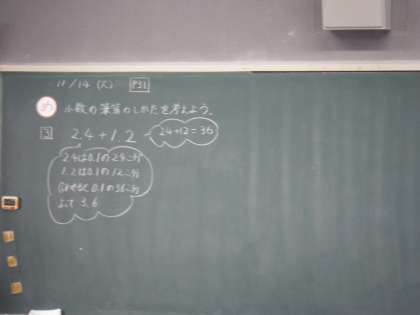 11/14 (火) P31
め 小数の筆算のしかたを考えよう。
3 2.4+1.2 24+12=36
2.4は0.1の24こ分
1.2は0.1の12こ分
あわせると0.1の36こ分
よって3.6